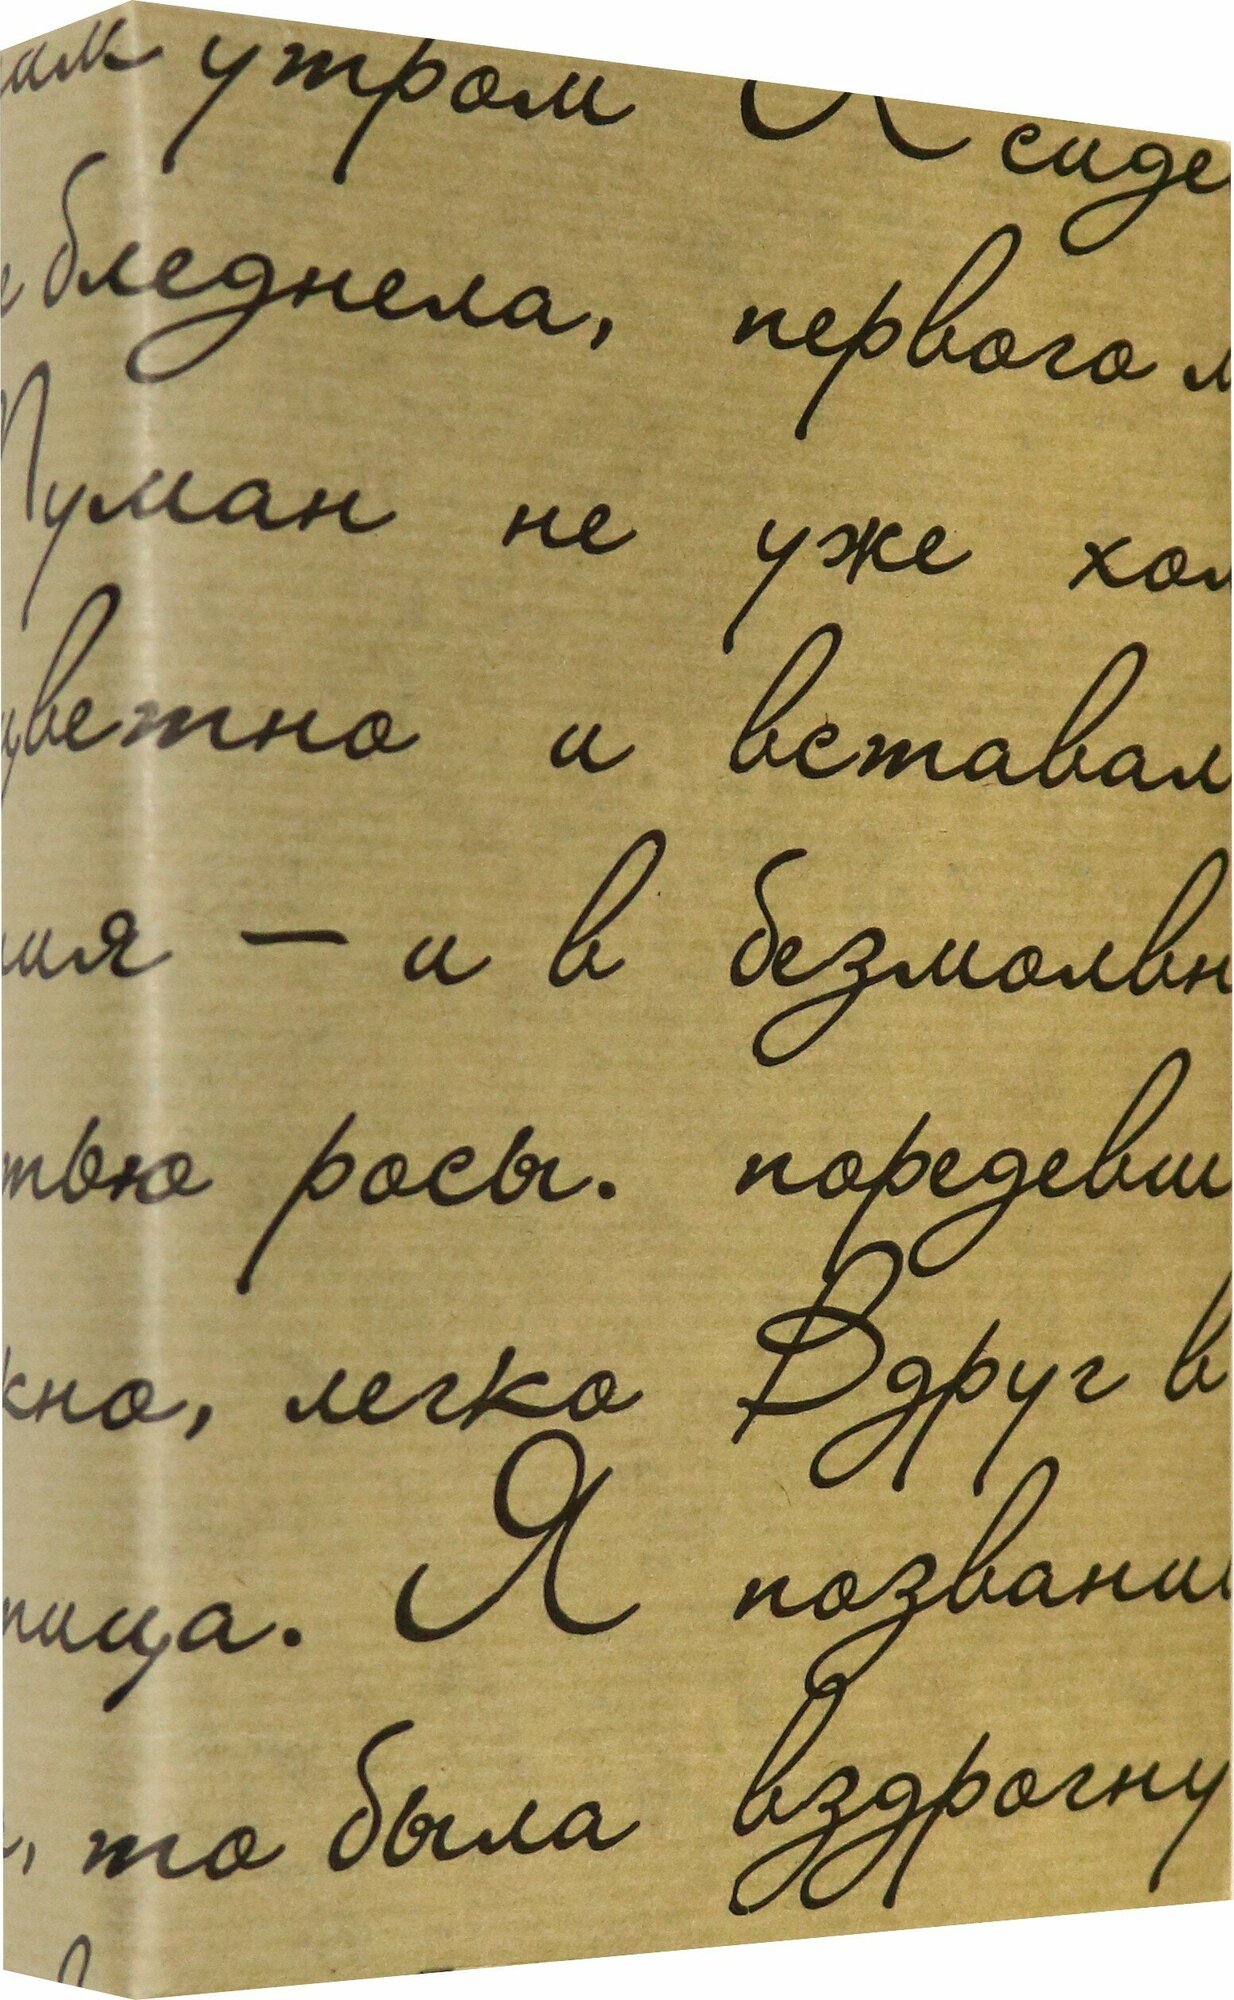 утром Я сиде
бледнела, первого
Туман не уже хол
цветно и вставал
ния — и в безмолвн
тью росы. поредевш
жно, легко Вдруг в
тица. Я позвани
, то была вздрогну